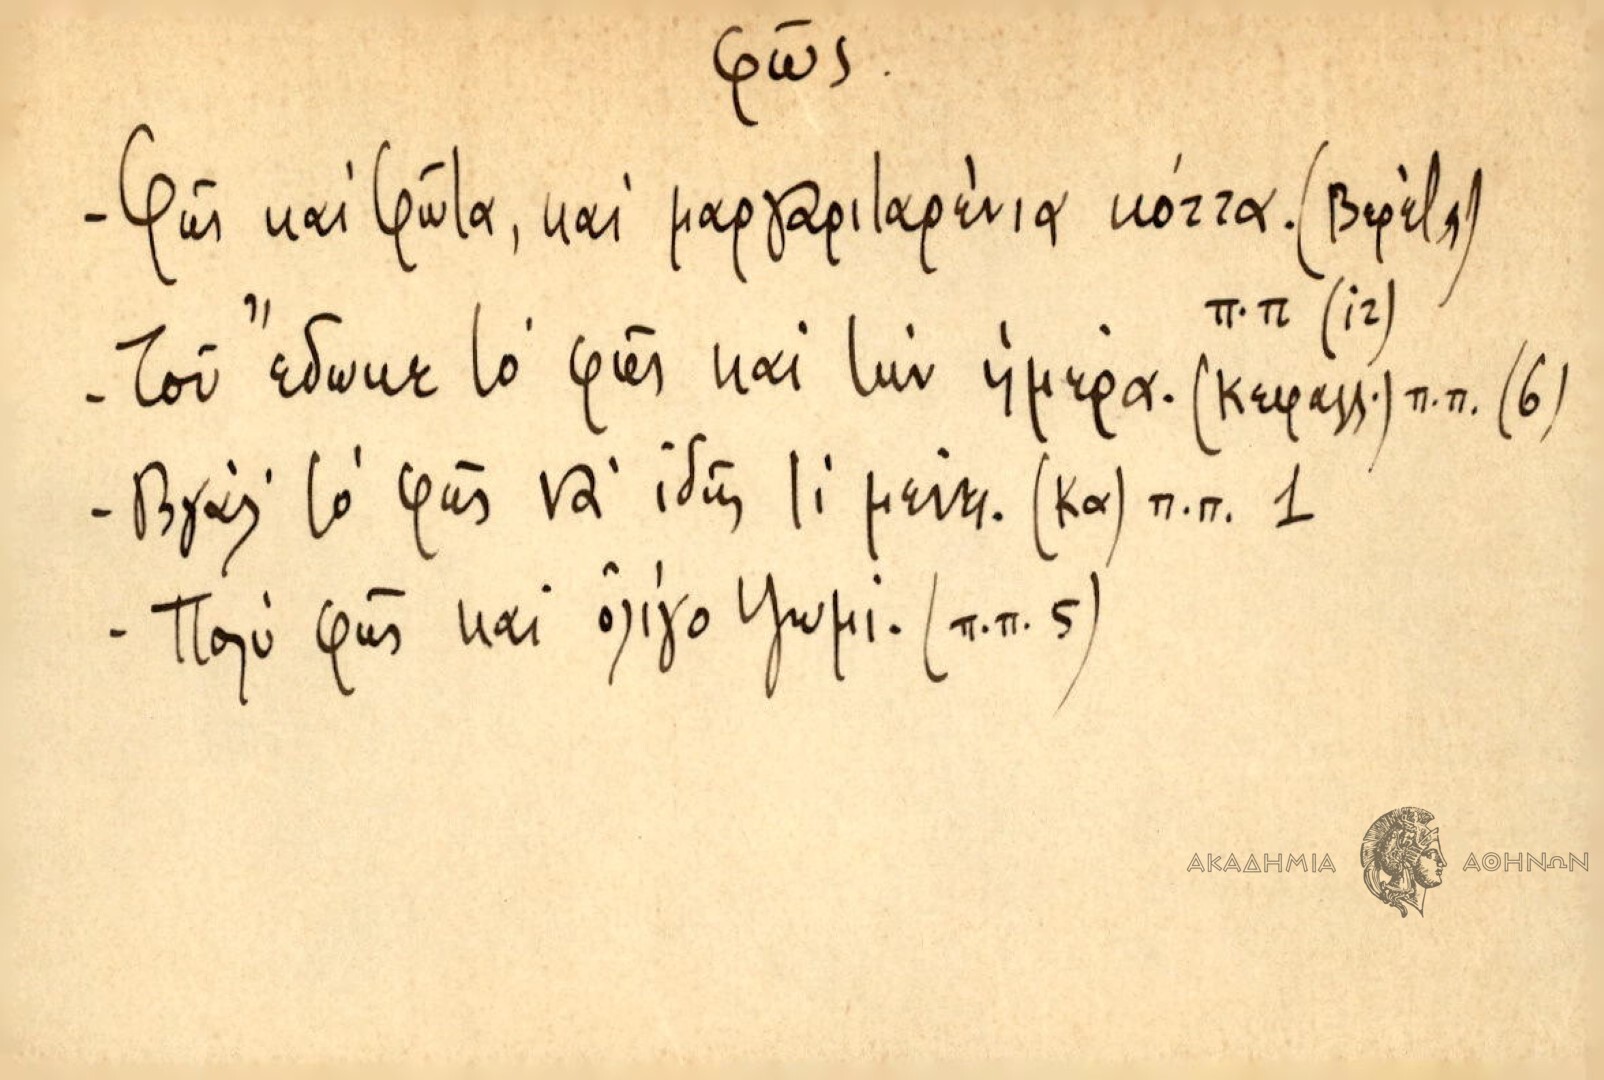 φῶς.
- Φῶς καὶ φῶτα, καὶ μαργαριταρένια κόττα. (Βερέτ.)
π.π (12)
- Τοῦ ἔδωκε τὸ φῶς καὶ τὴν ἡμέρα. (Κεφαλλ.) π.π. (6)
- Βγάλ' τὸ φῶς νὰ ἰδῇς τί μένει. (Κα) π.π. 1
- Πολὺ φῶς καὶ ὀλίγο ψωμί. (π.π. 5)
ΑΚΑΔΗΜΙΑ ΑΘΗΝΩΝ